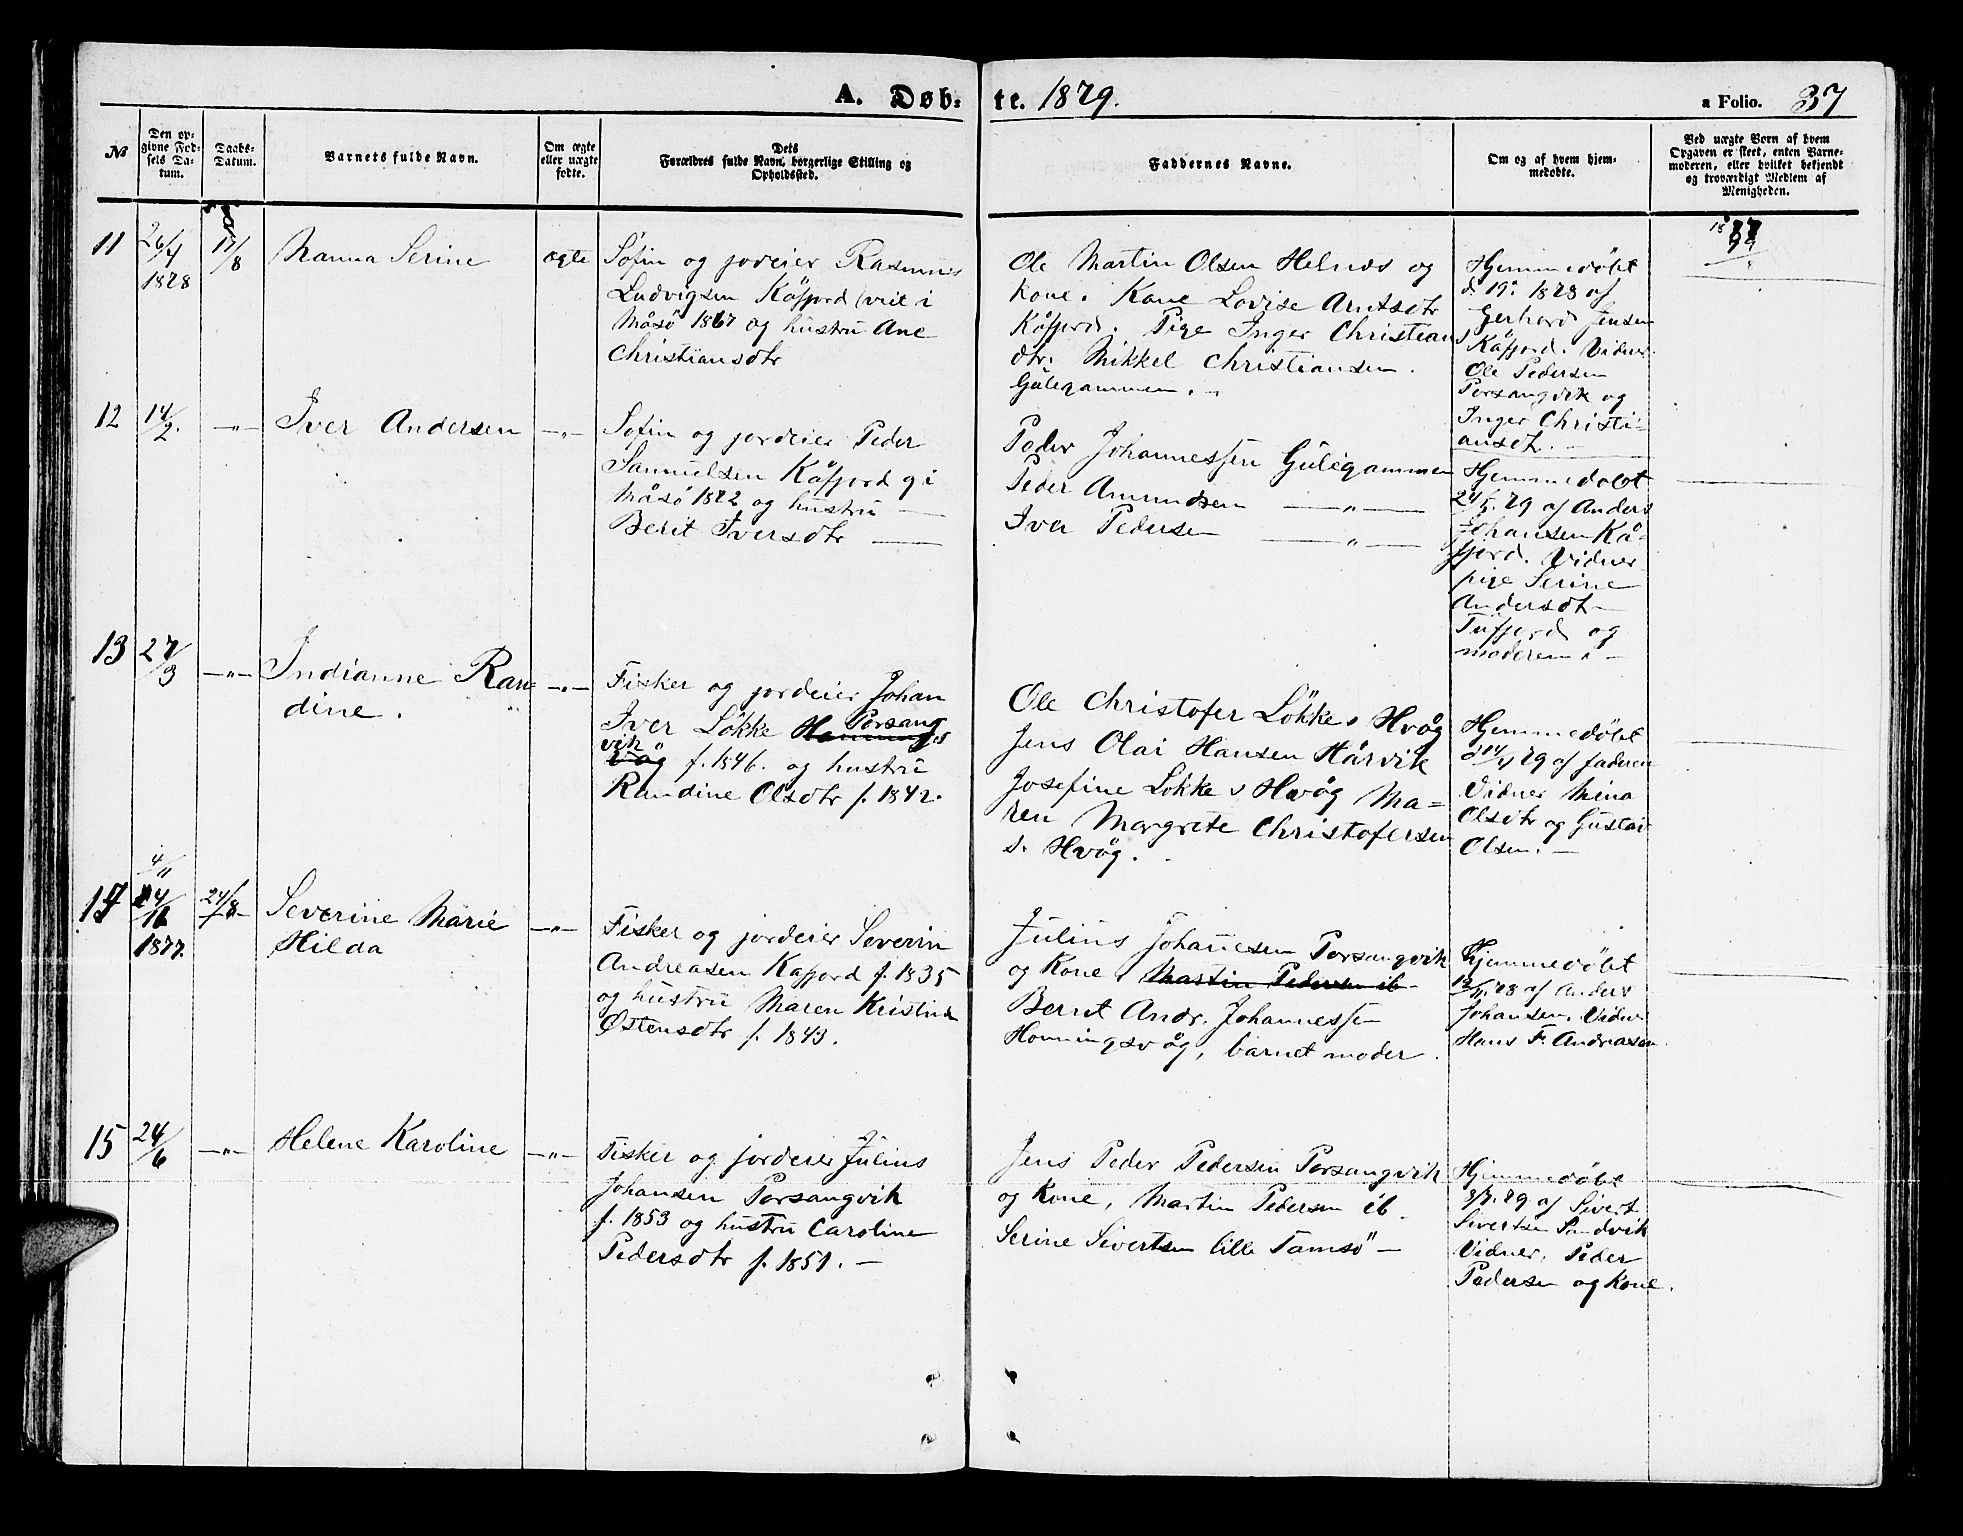 A. Døb-
te. 1879.
a Folio. 37
№
Den op-
givne Fød-
sels Da-
tum.
Daabs-
Datum.
Barnets fulde Navn.
Om ægte
eller uægte
fødte.
Dets
Forældres fulde Navn, borgerlige Stilling og
Opholdssted.
Faddernes Navne.
Om og af hvem hjem-
medøbte.
Ved uægte Børn af hvem
Opgaven er skeet, enten Barne-
moderen, eller hvilket bekjendt
og troværdigt Medlem af
Menigheden.
11
26/4
1878
17/8
Nanna Serine
ægte
Søfin og jordeier Rasmus
Ludvigsen Kåfjord (viet i
Måsö 1867 og hustru Ane
Christiansdtr
Ole Martin Olsen Helnes og
kone. Kone Lovise Arntsdtr
Kåfjord. Pige Inger Christians
dtr. Mikkel Christiansen.
Gulegammen.
Hjemmedöbt
d. 19. 1878 af
Gerhard Jensen
Kåfjord. Vidner
Ole Pedersen
Porsangvik og
Inger Christi-
ansdt.
12
14/2.
-"-
Iver Andersen
-"-
Søfin og jordeier Peder
Samuelsen Kåfjord g i
Måsö 1872 og hustru
Berit Iversdtr
Peder Johannessen Gulegammen
Peder Amundsen -"-
Iver Pedersen -"-
Hjemmedöbt
24/5. 79 af Anders
Johansen Kå-
fjord. Vidner
pige Serine
Andersdt
Tufjord og
moderen.
13
27/3
-"-
Indianne Ran-
dine.
-"-
Fisker og jordeier Johan
Iver Lökke Honnings Porsang
vik våg f. 1846. og hustru
Randine Olsdtr f. 1842.
Ole Christofer Lökke s Hvåg
Jens Olai Hansen Hårvik
Josefine Lökke s Hvåg Ma-
ren Margrete Christofersen
s. Hvåg.
Hjemmedöbt
d 14/4 79 af faderen
Vidner Mina
Olsdtr og Gustav
Olsen.
14
4/11
24/11
1877.
24/8
Severine Marie
Hilda
-"-
Fisker og jordeier Severin
Andreasen Kafjord f. 1835
og hustru Maren Kristine
Østensdtr f. 1843.
Julius Johanesen Porsangvik
og Kone, Martin Pedersen ib
Bernt Andr. Johannessen
Honningsvåg, barnet moder.
Hjemmedöbt
12/11.78 af Anders
Johansen. Vidner
Hans F. Andreasen
15
24/6
-"-
Helene Karoline
-"-
Fisker og jordeier Julius
Johansen Porsangvik
f. 1853 og hustru Caroline
Pedersdtr f. 1851.
Jens Peder Pedersen Porsangvik
og Kone, Martin Pedersen ib.
Serine Sivertsen lille Tamsö
Hjemmedöbt
3/7. 79 af Sivert
Sivertsen Sandvik
Vidner, Peder
Pedersen og Kone.